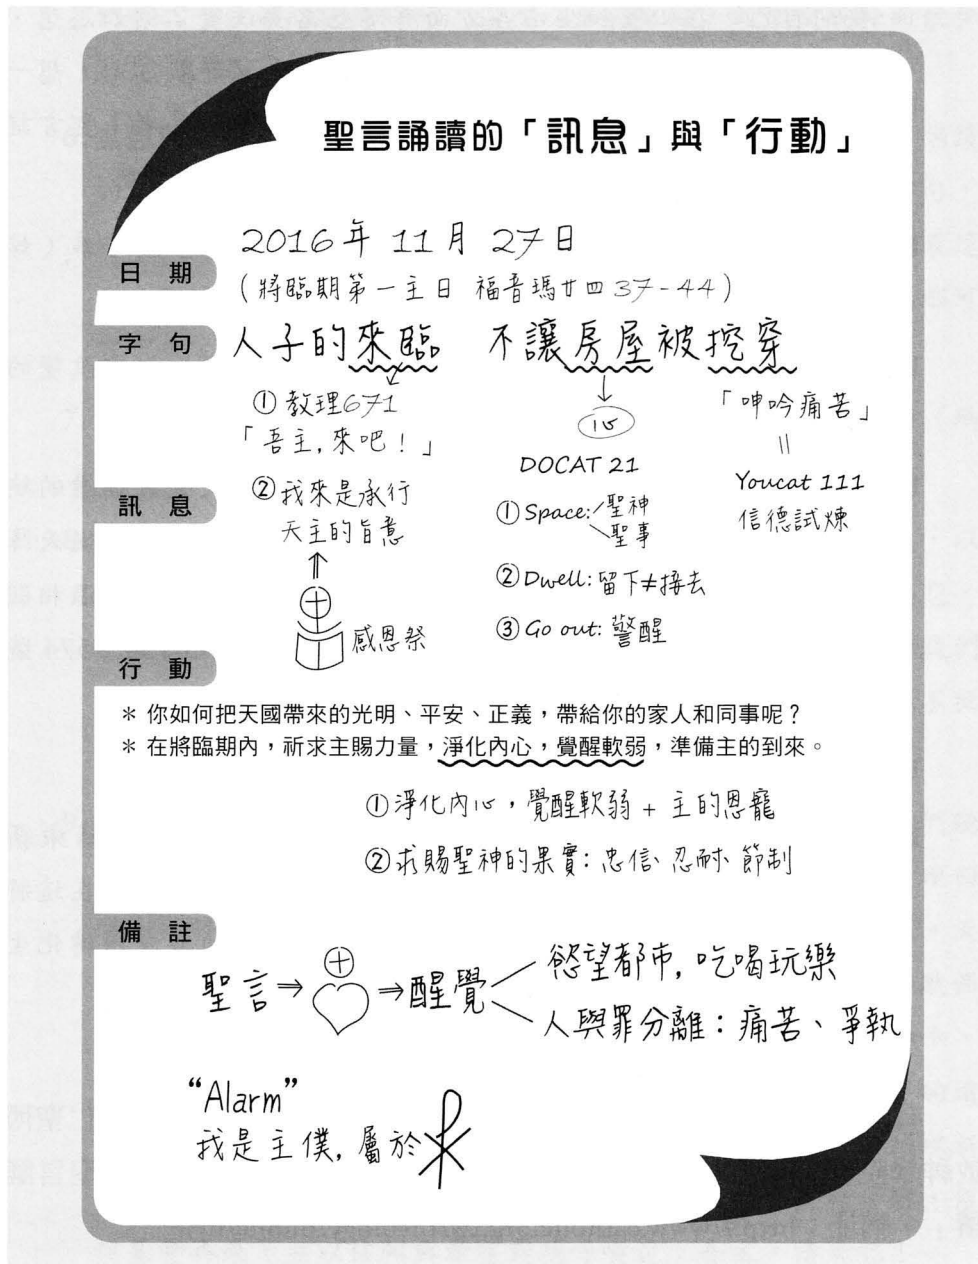 聖言誦讀的「訊息」與「行動」
日期
2016年 11月 27日
(將臨期第一主日 福音瑪廿四37-44)
字句
人子的來臨 不讓房屋被挖穿
① 教理671
「吾主,來吧!」
② 我來是承行
天主的旨意
感恩祭
心
DOCAT 21
① Space: 聖神
聖事
② Dwell: 留下≠接去
③ Go out: 警醒
「呻吟痛苦」
=
Youcat 111
信德試煉
訊息
行動
* 你如何把天國帶來的光明、平安、正義,帶給你的家人和同事呢?
* 在將臨期內,祈求主賜力量,淨化內心,覺醒軟弱,準備主的到來。
① 淨化內心,覺醒軟弱 + 主的恩寵
② 求賜聖神的果實: 忠信、忍耐、節制
備註
聖言⇒ ⇒醒覺
慾望都市, 吃喝玩樂
人與罪分離: 痛苦、爭執
“Alarm”
我是主僕, 屬於